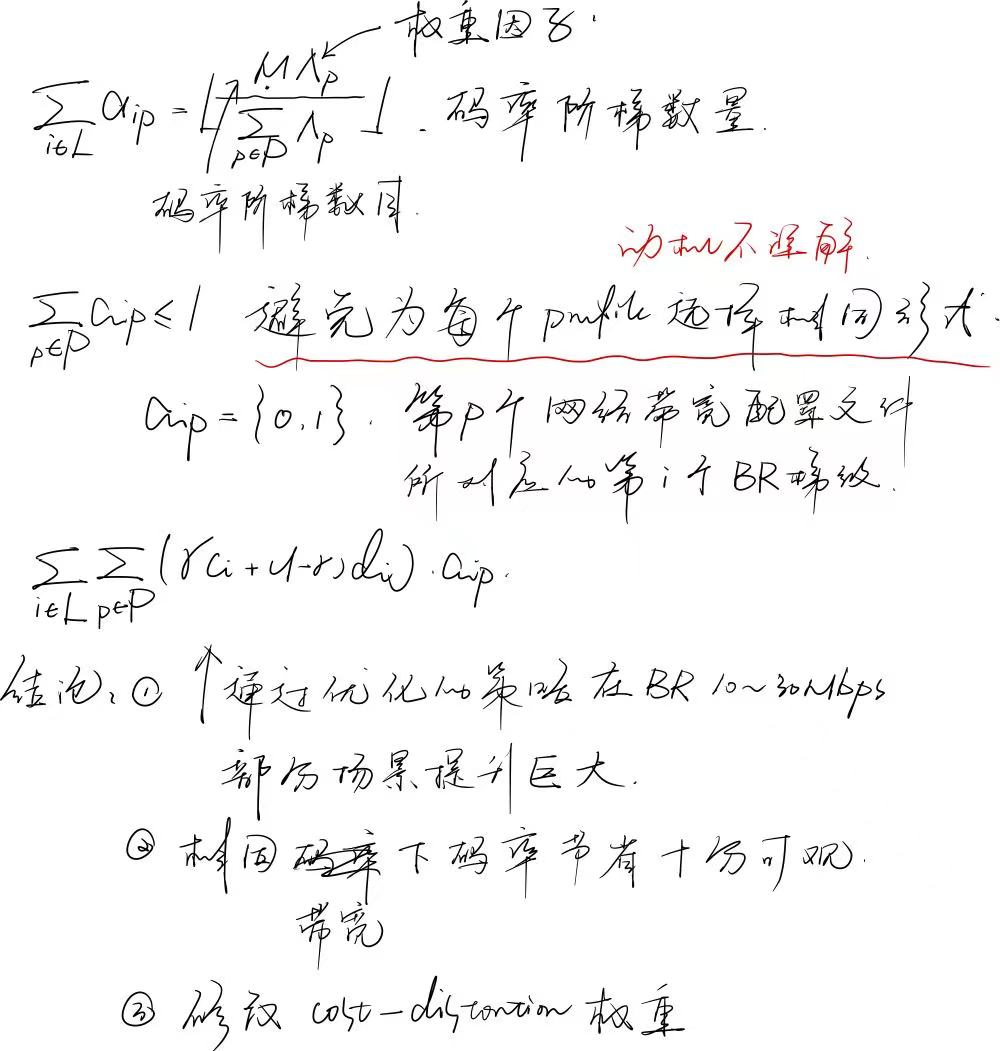 权重因子.
∑_{i∈L} a_{ip} = ⌊ M Λ_p / ∑_{p∈P} Λ_p ⌋. 码率阶梯数量.
码率阶梯数目.
动机不深解.
∑_{p∈P} a_{ip} ≤ 1 避免为每个profile选择相同形式.
a_{ip} = {0,1}. 第p个网络带宽配置文件
所对应的第i个BR梯级.
∑_{i∈L} ∑_{p∈P} (γc_i + (1-γ)d_i)·a_{ip}.
结论: ① ↑通过优化的策略在BR 10~30Mbps
部分场景提升巨大.
② 相同码率下码率节省十分可观.
带宽
③ 修改 cost-distortion 权重